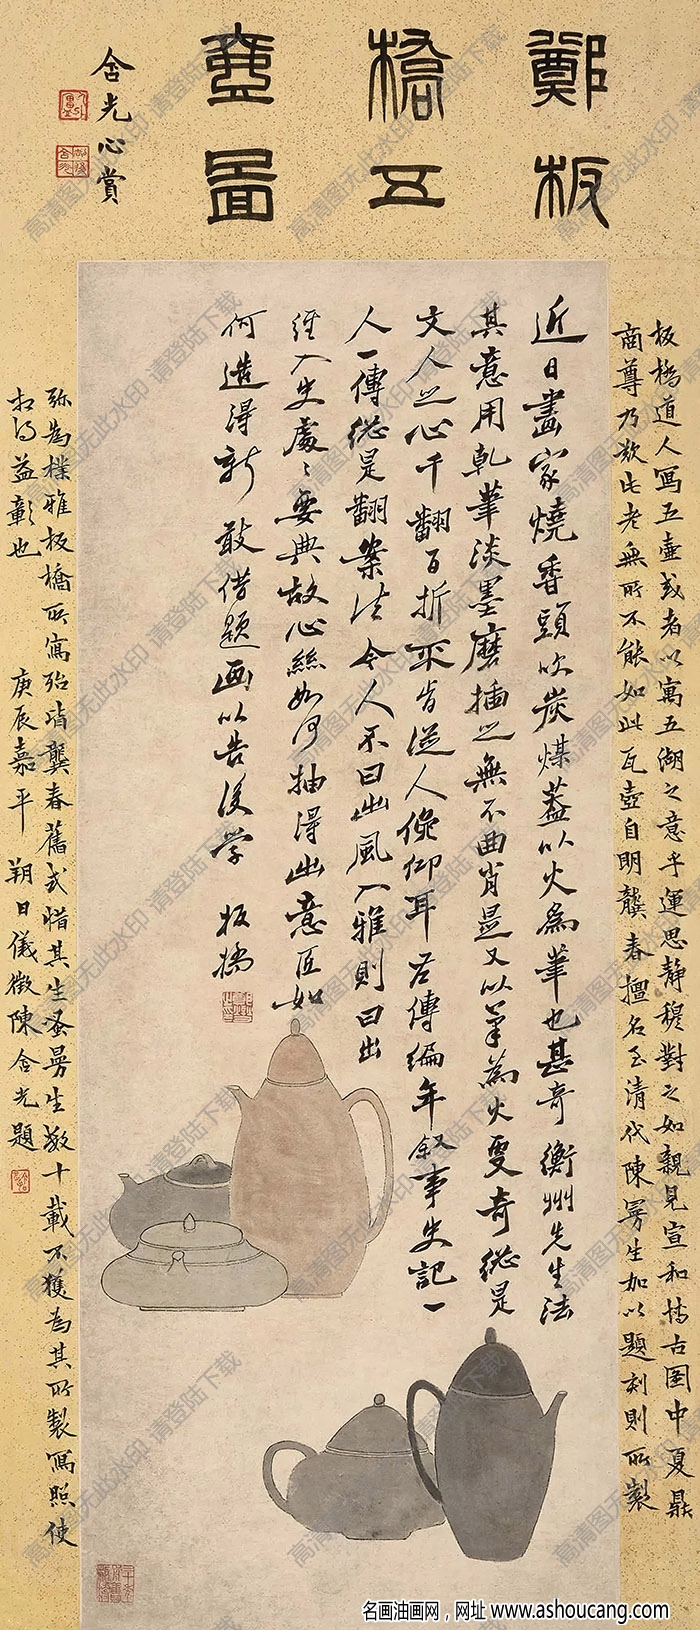 鄭板
橋五
壺圖
含光心賞
近日畫家燒香頭吹炭煤蓋以火為筆也甚奇衡州先生法
其意用乾筆淡墨磨插之無不曲肖是又以筆為火更奇總是
文人之心千翻百折不肯從人俛仰耳若傳編年叙事史記一
人一傳總是翻案法令人不曰出風入雅則曰出
經入史處處要典故心絲如何抽得出意匠如
何造得新敢借題画以告後学 板橋
板橋道人寫五壺或者以寓五湖之意乎運思静穆對之如親見宣和博古图中夏鼎
商尊乃歎此老無所不能如此瓦壺自明龔春擅名至清代陳曼生加以題刻則所製
弥為樸雅板橋所寫殆皆龔春舊式惜其生蚤曼生數十載不獲為其所製寫照使
相得益彰也 庚辰嘉平朔日儀徵陳含光題
高清图无此水印·请登陆下载
名画油画网，网址 www.ashoucang.com